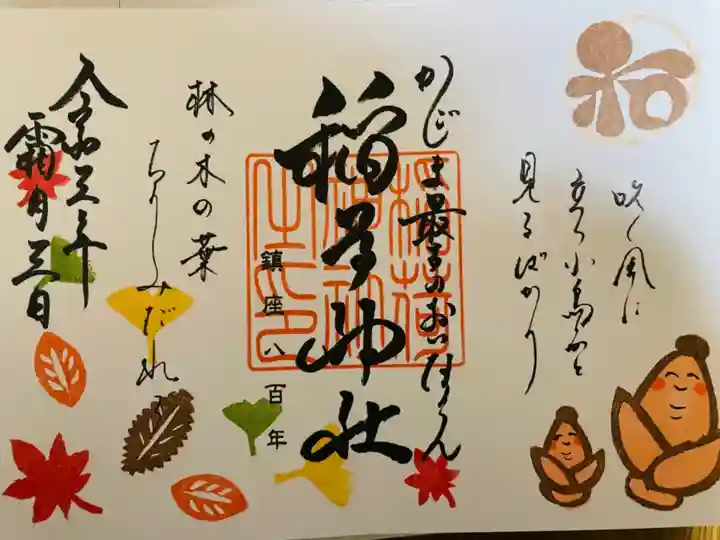 和
吹く風に
立つ小鳥かと
見るばかり
かじま最古のおいなりさん
稲荷神社
鎮座八百年
林の木の葉
ちりしみだれる
令和三年
霜月三日